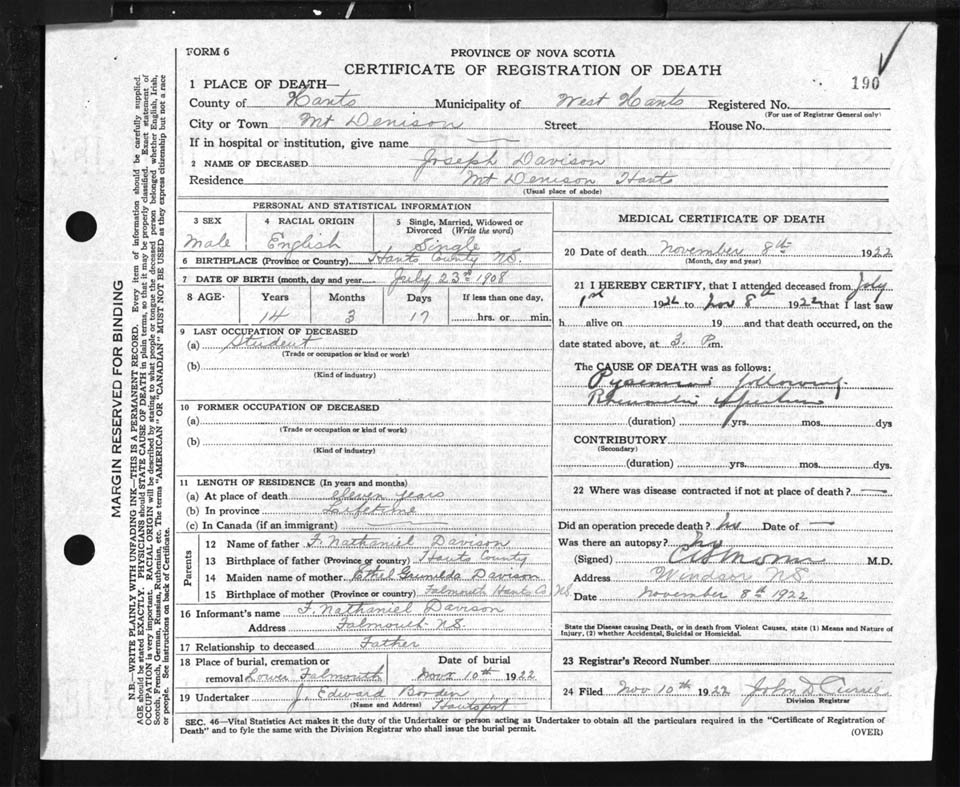 FORM 6
PROVINCE OF NOVA SCOTIA
CERTIFICATE OF REGISTRATION OF DEATH
190
1 PLACE OF DEATH—
County of Hants Municipality of West Hants Registered No.
(For use of Registrar General only)
City or Town Mt Denison Street House No.
If in hospital or institution, give name
2 NAME OF DECEASED Joseph Davison
Residence Mt Denison Hants
(Usual place of abode)
PERSONAL AND STATISTICAL INFORMATION
3 SEX 4 RACIAL ORIGIN 5 Single, Married, Widowed or Divorced (Write the word)
Male English Single
6 BIRTHPLACE (Province or Country) Hants County N.S.
7 DATE OF BIRTH (month, day and year) July 23rd 1908
8 AGE Years Months Days If less than one day,
14 3 17 hrs. or min.
9 LAST OCCUPATION OF DECEASED
(a) Student
(Trade or occupation or kind or work)
(b)
(Kind of industry)
10 FORMER OCCUPATION OF DECEASED
(a)
(Trade or occupation or kind of work)
(b)
(Kind of industry)
11 LENGTH OF RESIDENCE (In years and months)
(a) At place of death eleven years
(b) In province Lifetime
(c) In Canada (if an immigrant)
Parents
12 Name of father F. Nathaniel Davison
13 Birthplace of father (Province or country) Hants County
14 Maiden name of mother Ethel Davison
15 Birthplace of mother (Province or country) Falmouth Hants Co. N.S.
16 Informant's name F. Nathaniel Davison
Address Falmouth N.S.
17 Relationship to deceased Father
18 Place of burial, cremation or removal Lower Falmouth Date of burial Nov 10th 1922
19 Undertaker J. Edward Borden
(Name and Address) Hantsport
MEDICAL CERTIFICATE OF DEATH
20 Date of death November 8th 1922
(Month, day and year)
21 I HEREBY CERTIFY, that I attended deceased from July
1st 1922 to Nov 8th 1922 that I last saw
h alive on 19 and that death occurred, on the
date stated above, at 3. P.m.
The CAUSE OF DEATH was as follows:
Pyaemia following
(duration) yrs. mos. dys
CONTRIBUTORY
(Secondary)
(duration) yrs. mos. dys.
22 Where was disease contracted if not at place of death?
Did an operation precede death? No Date of
Was there an autopsy? No
(Signed) M.D.
Address Windsor N.S.
Date November 8th 1922
State the Disease causing Death, or in death from Violent Causes, state (1) Means and Nature of
Injury, (2) whether Accidental, Suicidal or Homicidal.
23 Registrar's Record Number
24 Filed Nov 10th 1922 John D. Currie
Division Registrar
SEC. 46—Vital Statistics Act makes it the duty of the Undertaker or person acting as Undertaker to obtain all the particulars required in the "Certificate of Registration of
Death" and to fyle the same with the Division Registrar who shall issue the burial permit.
(OVER)
MARGIN RESERVED FOR BINDING
N.B.—WRITE PLAINLY WITH UNFADING INK—THIS IS A PERMANENT RECORD. Every item of information should be carefully supplied.
AGE should be stated EXACTLY. PHYSICIANS should STATE CAUSE OF DEATH in plain terms, so that it may be properly classified. Exact statement of
OCCUPATION is very important. RACIAL ORIGIN will be described by stating to what people or tongue the deceased person belonged whether English, Irish,
Scotch, French, German, Russian, Ruthenian, etc. The terms "AMERICAN" OR "CANADIAN" MUST NOT BE USED as they express citizenship but not a race
or people. See instructions on back of Certificate.